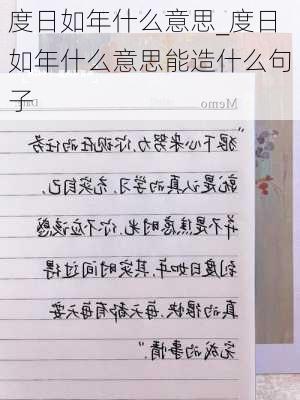 度日如年什么意思_度日
如年什么意思能造什么句
子
Memo Date
"狠下心来努力,你现在的任务
就是认真的学习,充实自己,
并不是焦虑时光,你不应该感
到度日如年,其实时间过得
真的很快,每天都有每天要
完成的事情."